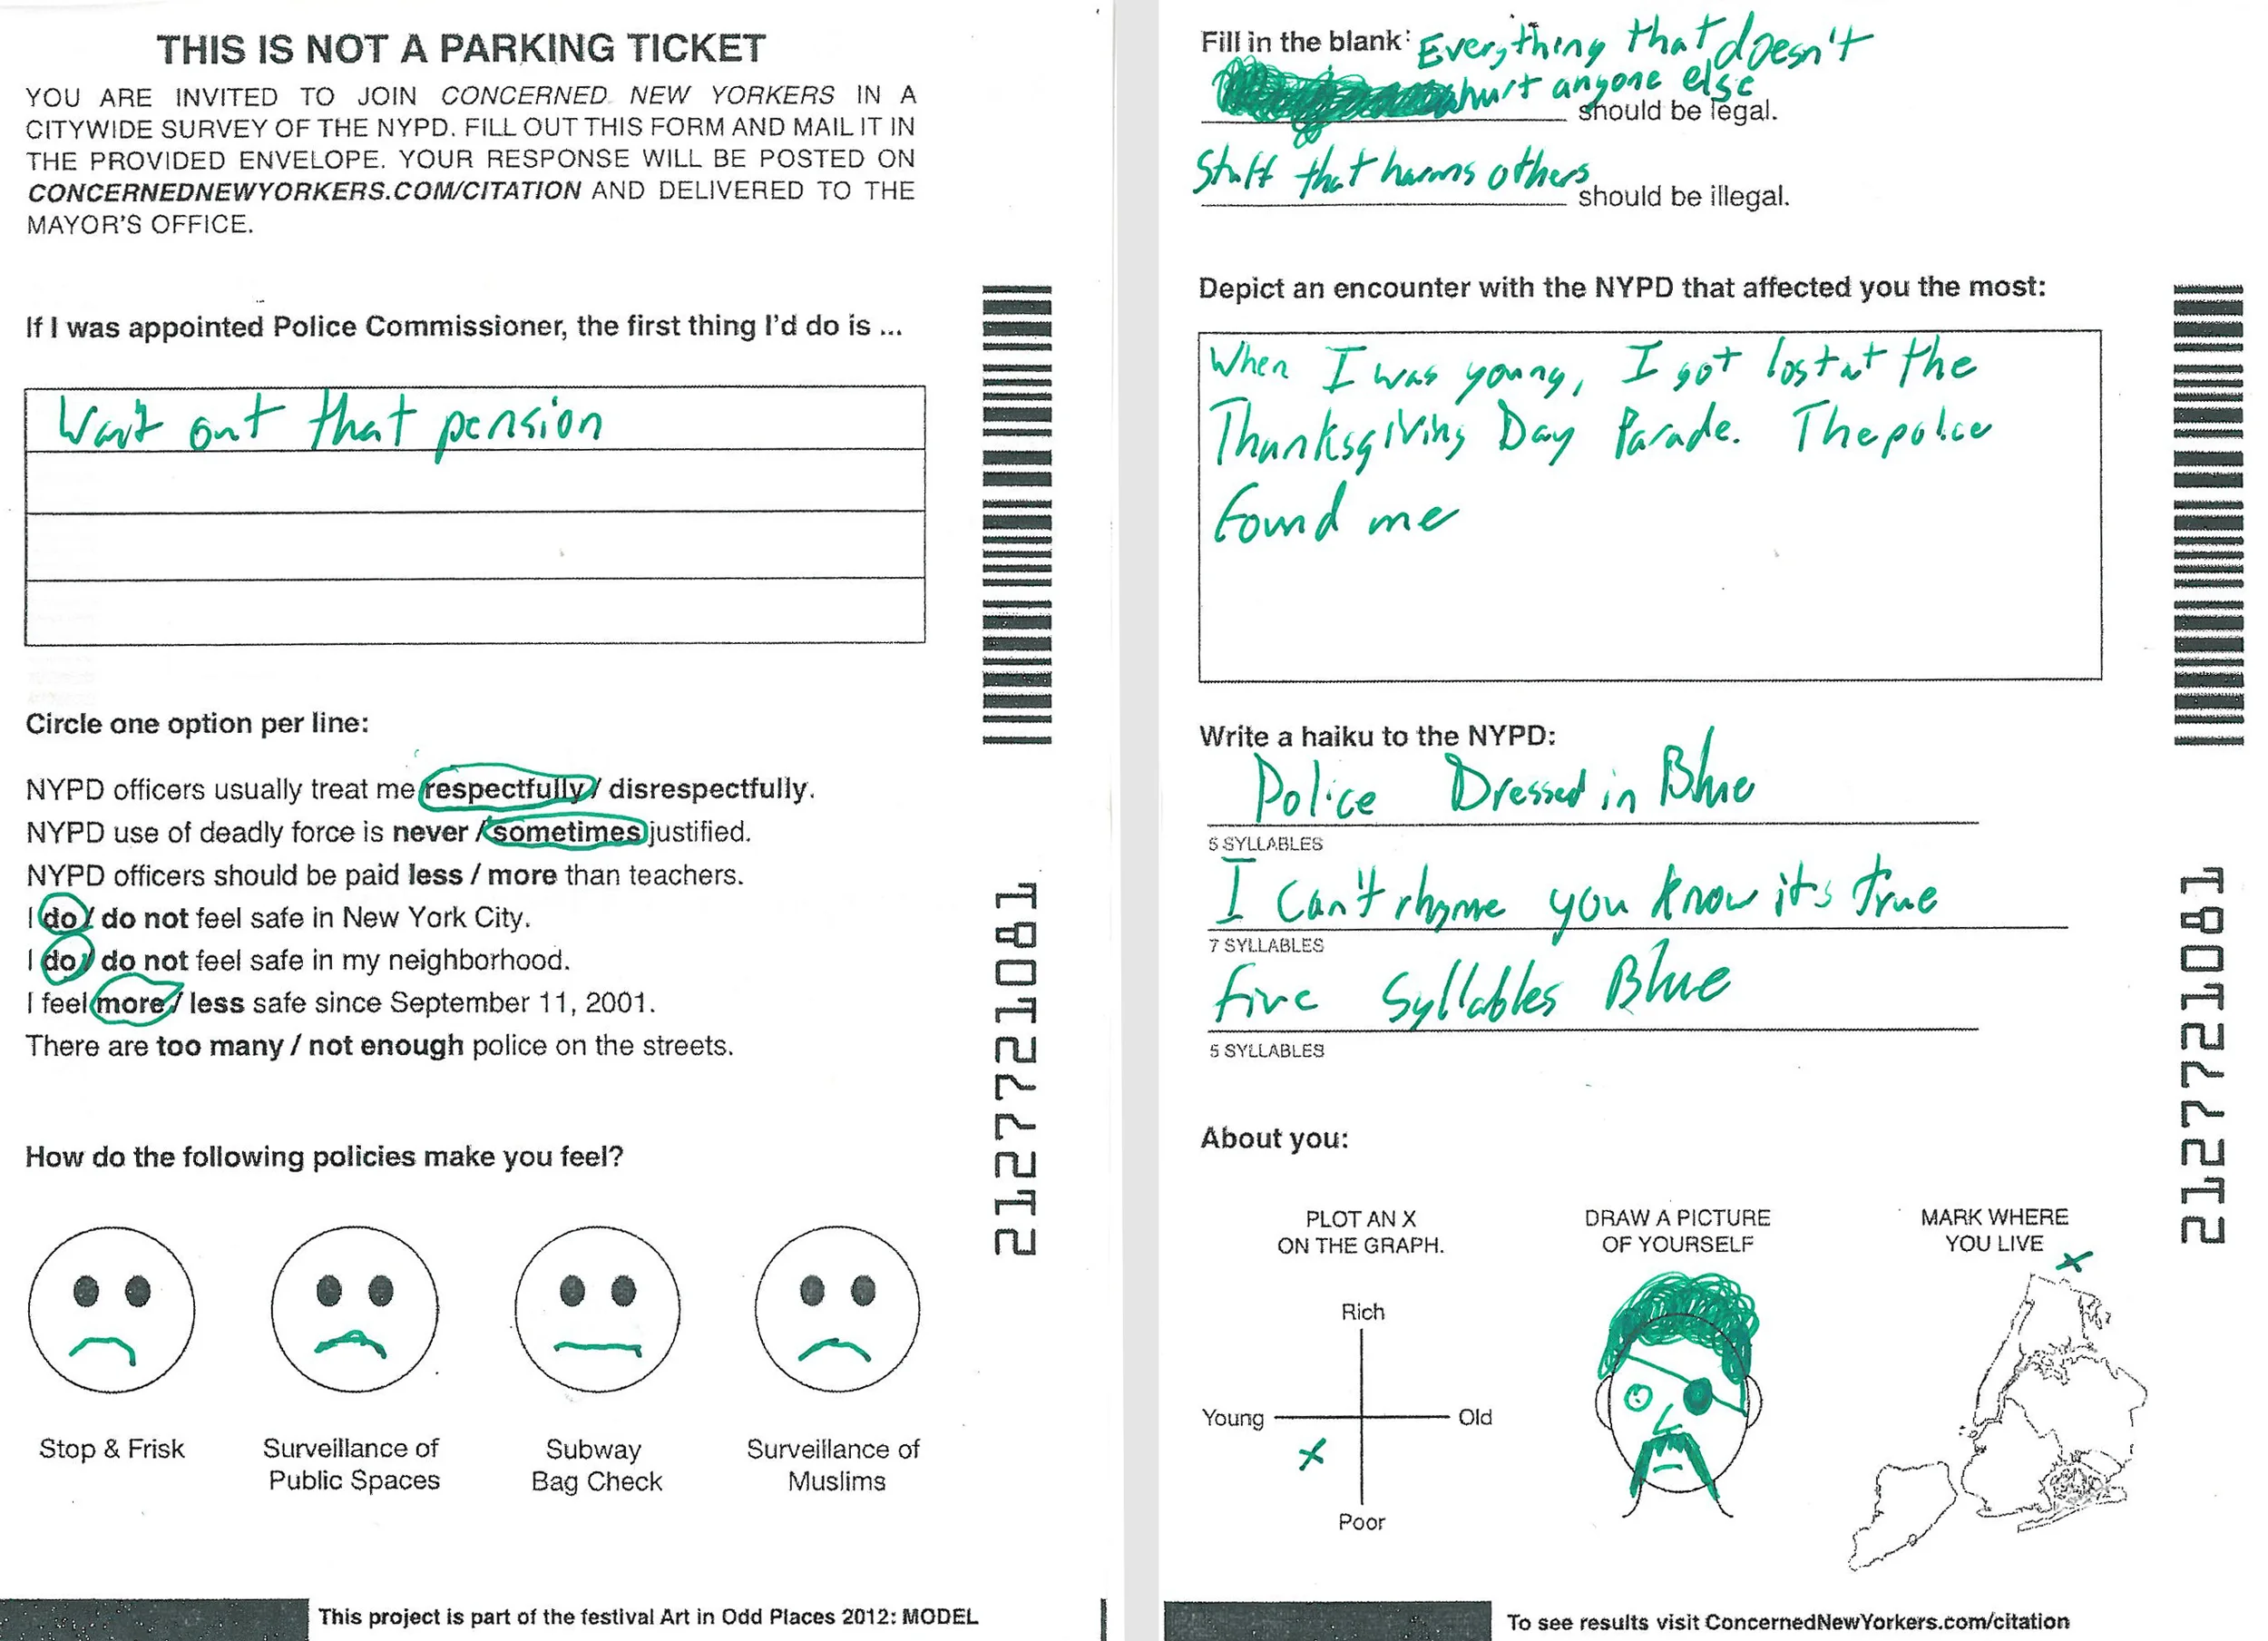 THIS IS NOT A PARKING TICKET
YOU ARE INVITED TO JOIN CONCERNED NEW YORKERS IN A
CITYWIDE SURVEY OF THE NYPD. FILL OUT THIS FORM AND MAIL IT IN
THE PROVIDED ENVELOPE. YOUR RESPONSE WILL BE POSTED ON
CONCERNEDNEWYORKERS.COM/CITATION AND DELIVERED TO THE
MAYOR'S OFFICE.
If I was appointed Police Commissioner, the first thing I'd do is ...
Wait out that pension
Circle one option per line:
NYPD officers usually treat me respectfully / disrespectfully.
NYPD use of deadly force is never / sometimes justified.
NYPD officers should be paid less / more than teachers.
I do / do not feel safe in New York City.
I do / do not feel safe in my neighborhood.
I feel more / less safe since September 11, 2001.
There are too many / not enough police on the streets.
How do the following policies make you feel?
Stop & Frisk
Surveillance of
Public Spaces
Subway
Bag Check
Surveillance of
Muslims
21277721081
This project is part of the festival Art in Odd Places 2012: MODEL
Fill in the blank: Everything that doesn't
hurt anyone else
should be legal.
Stuff that harms others
should be illegal.
Depict an encounter with the NYPD that affected you the most:
When I was young, I got lost at the
Thanksgiving Day Parade. The police
found me
Write a haiku to the NYPD:
Police Dressed in Blue
5 SYLLABLES
I Can't rhyme you know it's true
7 SYLLABLES
Five Syllables Blue
5 SYLLABLES
About you:
PLOT AN X
ON THE GRAPH.
Rich
Young
Old
Poor
DRAW A PICTURE
OF YOURSELF
MARK WHERE
YOU LIVE
21277721081
To see results visit ConcernedNewYorkers.com/citation